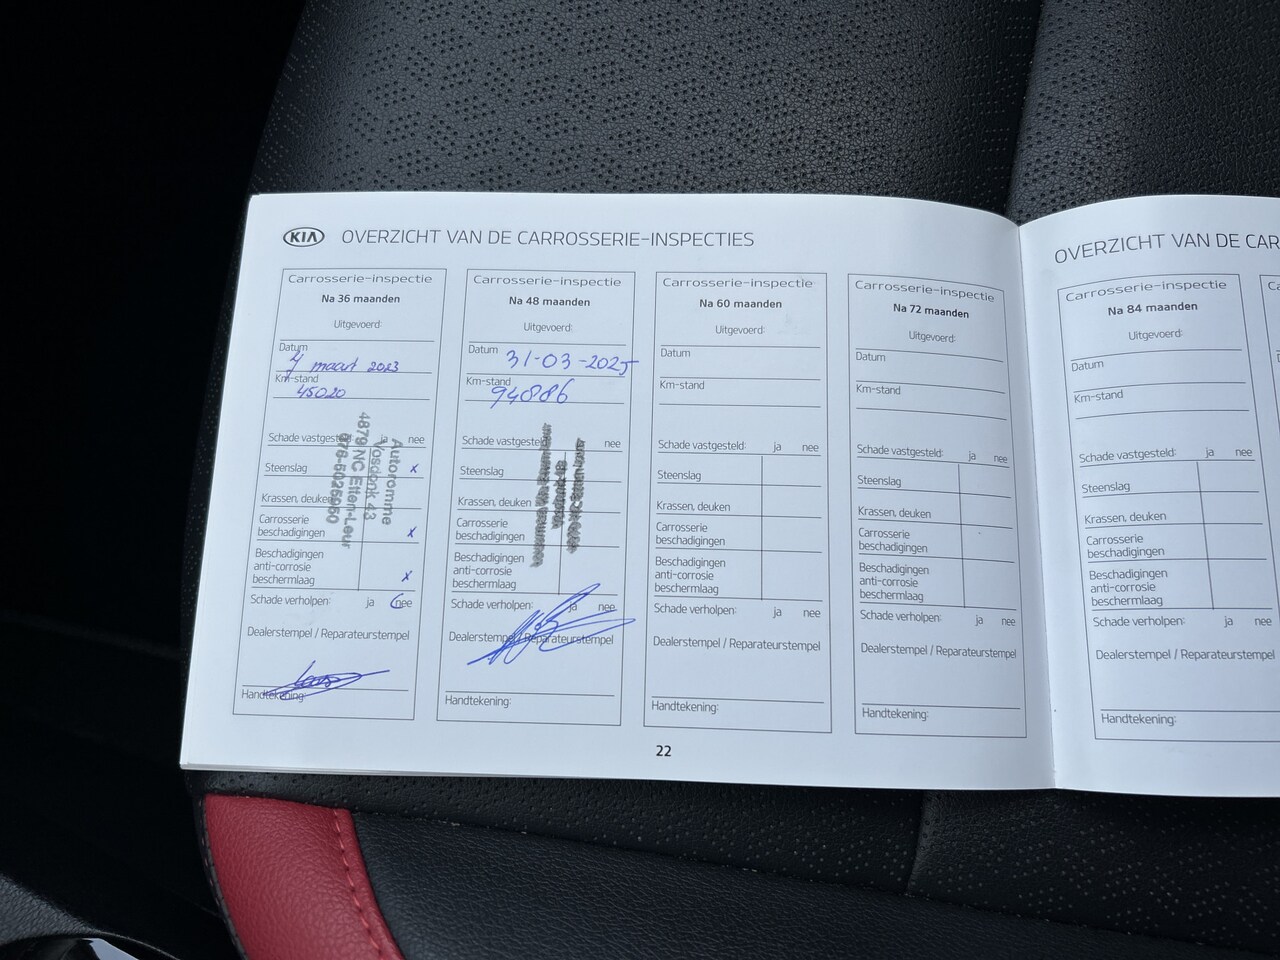 KIA OVERZICHT VAN DE CARROSSERIE-INSPECTIES
Carrosserie-inspectie
Na 36 maanden
Uitgevoerd:
Datum
4 maart 2023
Km-stand
45020
Schade vastgesteld: ja nee
Steenslag x
Krassen, deuken
Carrosserie
beschadigingen x
Beschadigingen
anti-corrosie
beschermlaag x
Schade verholpen: ja nee
Dealerstempel / Reparateurstempel
Handtekening:
Autoromme
Vosdonk 43
4879 NC Etten-Leur
076-5025050
Carrosserie-inspectie
Na 48 maanden
Uitgevoerd:
Datum
31-03-2025
Km-stand
94886
Schade vastgesteld: nee
Steenslag
Krassen, deuken
Carrosserie
beschadigingen
Beschadigingen
anti-corrosie
beschermlaag
Schade verholpen: ja nee
Dealerstempel / Reparateurstempel
Handtekening:
Carrosserie-inspectie
Na 60 maanden
Uitgevoerd:
Datum
Km-stand
Schade vastgesteld: ja nee
Steenslag
Krassen, deuken
Carrosserie
beschadigingen
Beschadigingen
anti-corrosie
beschermlaag
Schade verholpen: ja nee
Dealerstempel / Reparateurstempel
Handtekening:
Carrosserie-inspectie
Na 72 maanden
Uitgevoerd:
Datum
Km-stand
Schade vastgesteld: ja nee
Steenslag
Krassen, deuken
Carrosserie
beschadigingen
Beschadigingen
anti-corrosie
beschermlaag
Schade verholpen: ja nee
Dealerstempel / Reparateurstempel
Handtekening:
22
OVERZICHT VAN DE CAR
Carrosserie-inspectie
Na 84 maanden
Uitgevoerd:
Datum
Km-stand
Schade vastgesteld: ja nee
Steenslag
Krassen, deuken
Carrosserie
beschadigingen
Beschadigingen
anti-corrosie
beschermlaag
Schade verholpen: ja nee
Dealerstempel / Reparateurstempel
Handtekening: